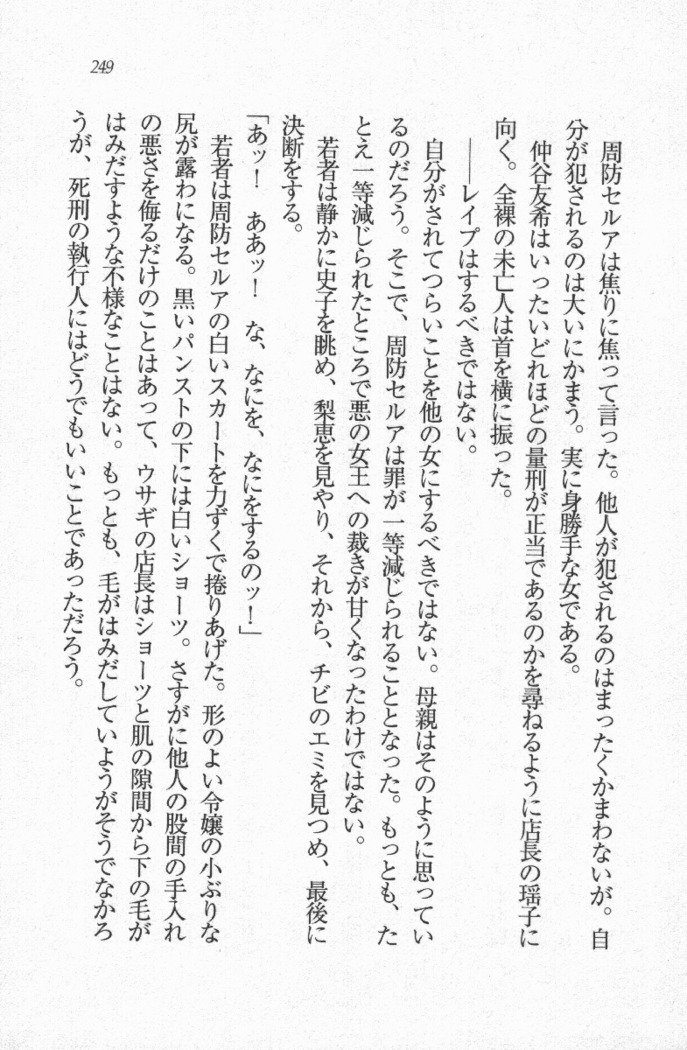 249
周防セルアは焦りに焦って言った。他人が犯されるのはまったくかまわないが。自
分が犯されるのは大いにかまう。実に身勝手な女である。
仲谷友希はいったいどれほどの量刑が正当であるのかを尋ねるように店長の瑶子に
向く。全裸の未亡人は首を横に振った。
――レイプはするべきではない。
自分がされてつらいことを他の女にするべきではない。母親はそのように思ってい
るのだろう。そこで、周防セルアは罪が一等減じられることとなった。もっとも、た
とえ一等減じられたところで悪の女王への裁きが甘くなったわけではない。
若者は静かに史子を眺め、梨恵を見やり、それから、チビのエミを見つめ、最後に
決断をする。
「あッ！　ああッ！　な、なにを、なにをするのッ！」
若者は周防セルアの白いスカートを力ずくで捲りあげた。形のよい令嬢の小ぶりな
尻が露わになる。黒いパンストの下には白いショーツ。さすがに他人の股間の手入れ
の悪さを侮るだけのことはあって、ウサギの店長はショーツと肌の隙間から下の毛が
はみだすような不様なことはない。もっとも、毛がはみだしていようがそうでなかろ
うが、死刑の執行人にはどうでもいいことであっただろう。